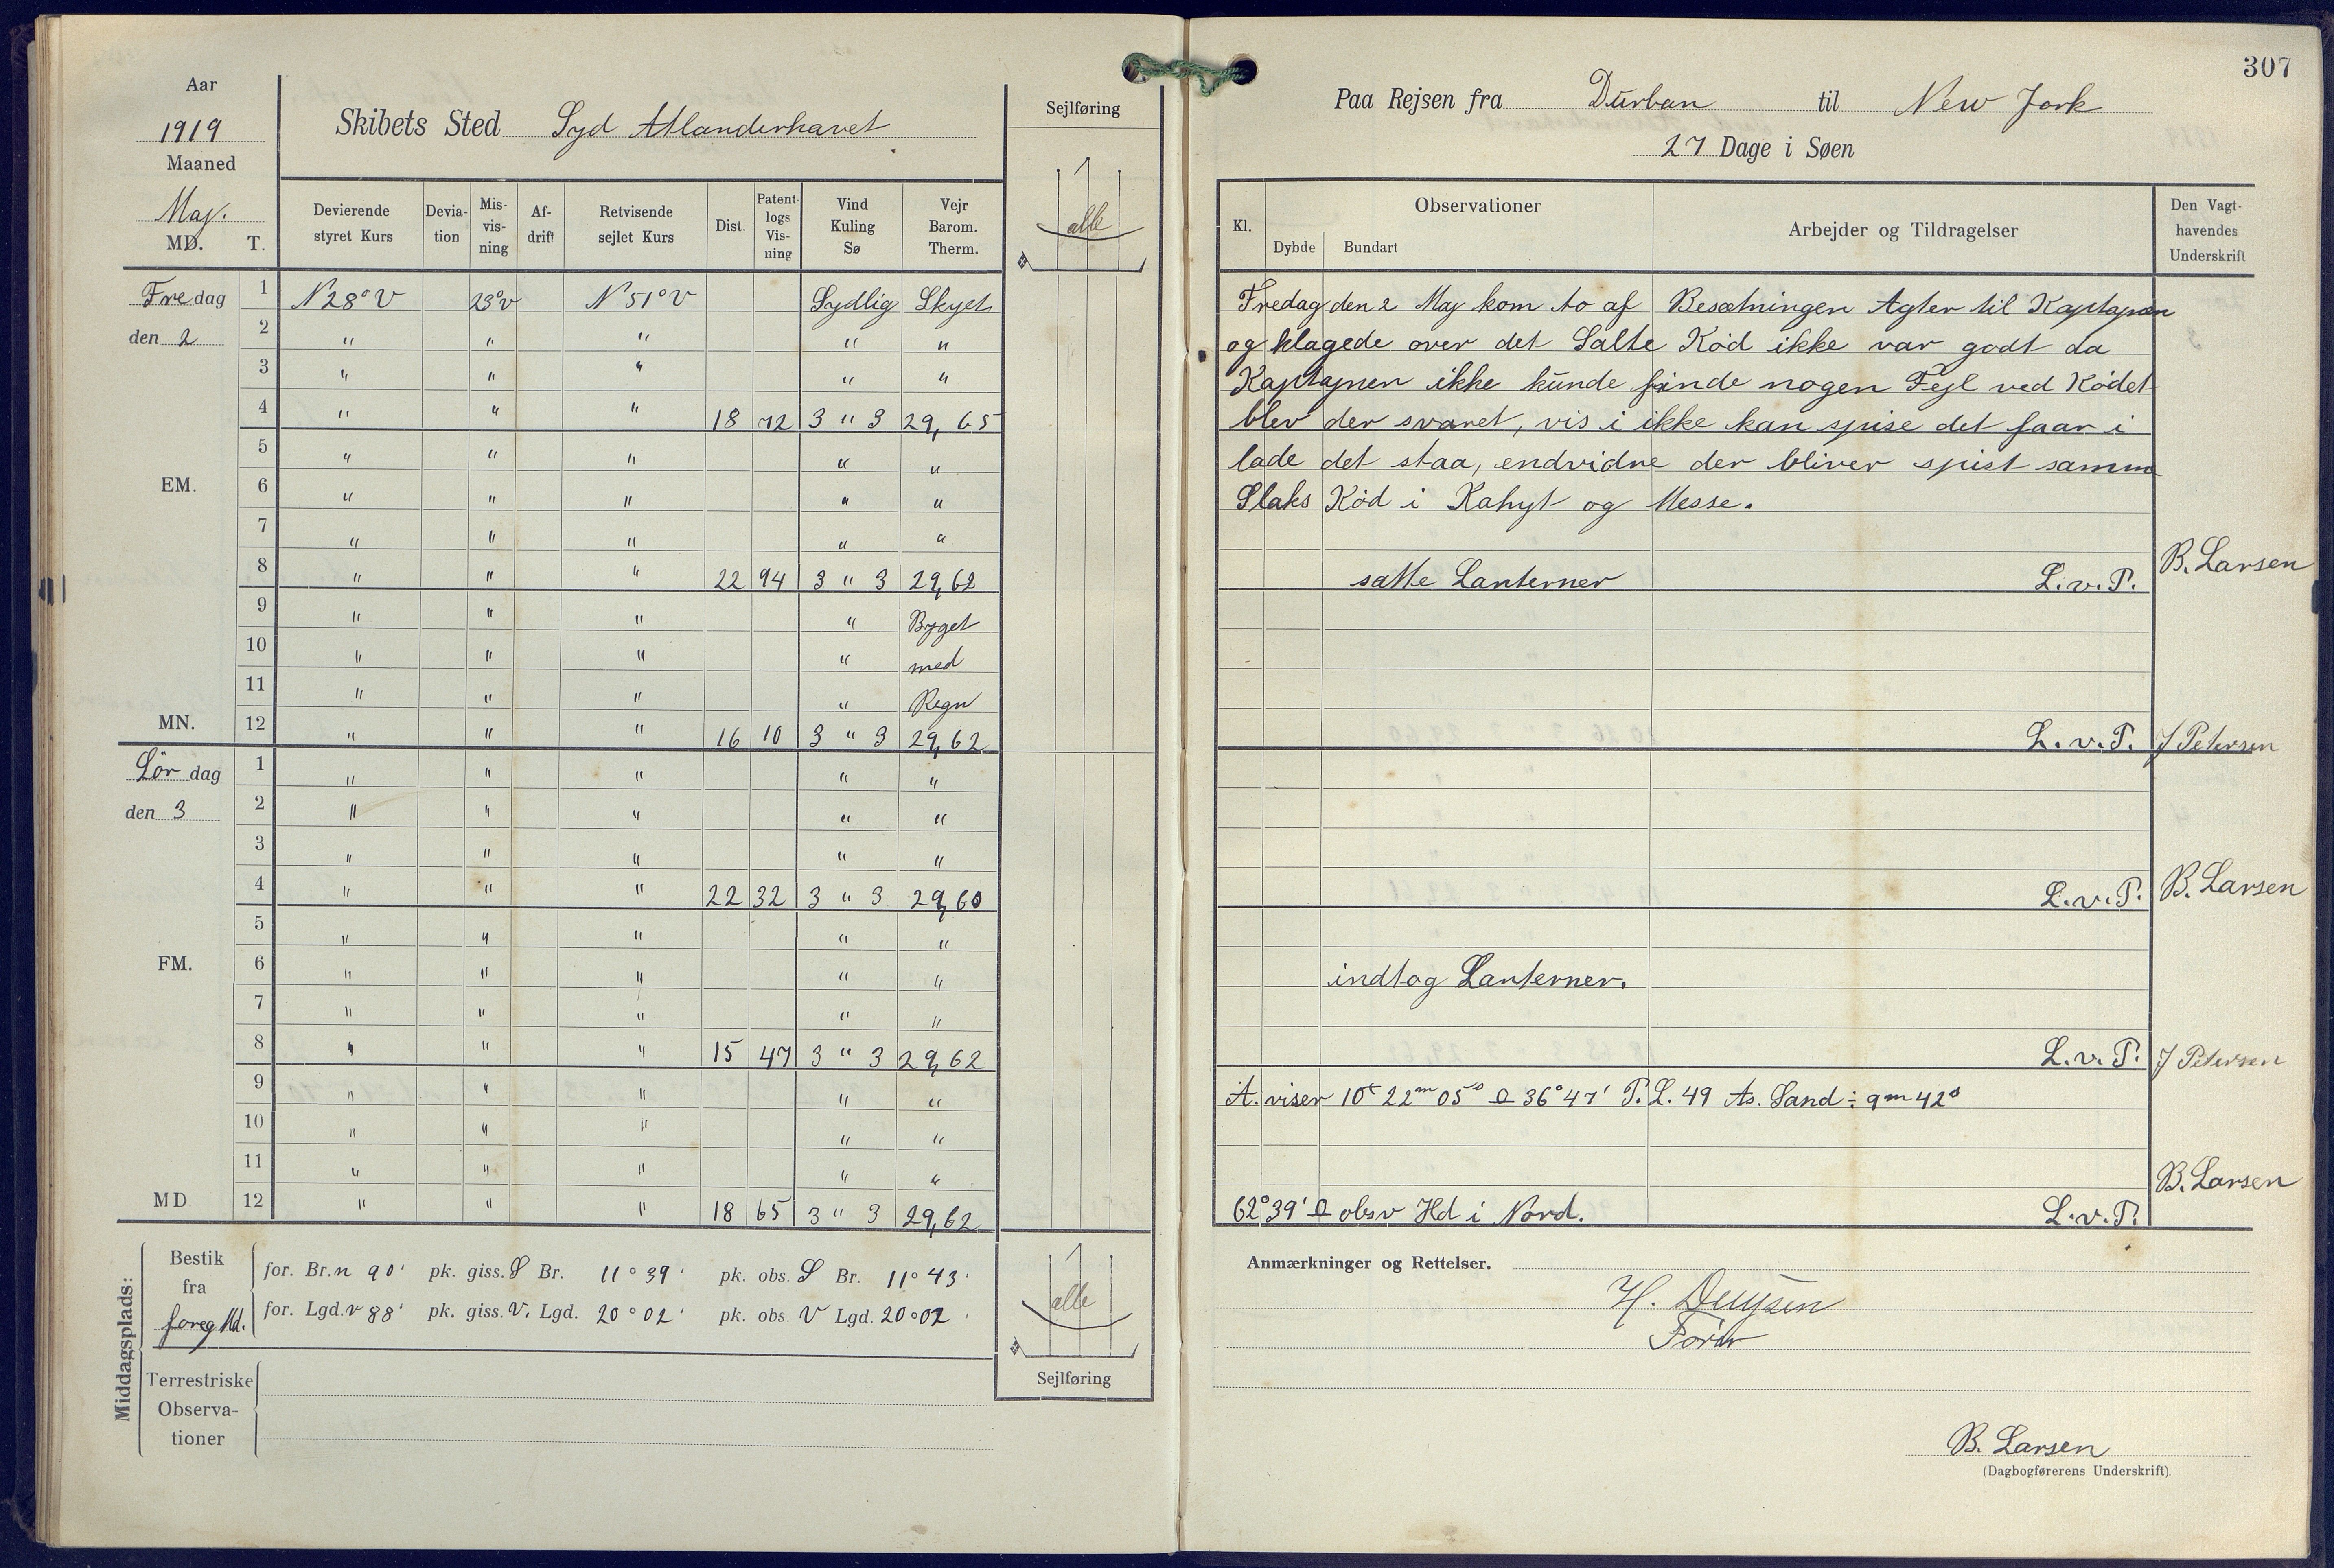 Aar
1919
Maaned
Maj.
MD. T.
Skibets Sted Syd Atlanderhavet
Sejlføring
alle
Devierende styret Kurs | Devia-tion | Mis-vis-ning | Af-drift | Retvisende sejlet Kurs | Dist. | Patent-logs Vis-ning | Vind Kuling Sø | Vejr Barom. Therm.
Fredag 1 N 28° V 23° V N 51° V Sydlig Skyet
den 2 2 " " " " "
3 " " " " "
4 " " " 18 72 3 " 3 29,65
5 " " " " "
EM. 6 " " " " "
7 " " " " "
8 " " " 22 94 3 " 3 29,62
9 " " " " Byget
10 " " " " med
11 " " " " Regn
MN. 12 " " " 16 10 3 " 3 29,62
Lördag 1 " " " " "
den 3 2 " " " " "
3 " " " " "
4 " " " 22 32 3 " 3 29,60
5 " " " " "
FM. 6 " " " " "
7 " " " " "
8 " " " 15 47 3 " 3 29,62
9 " " " " "
10 " " " " "
11 " " " " "
MD 12 " " " 18 65 3 " 3 29,62
Middagsplads:
Bestik fra foreg Md.
for. Br. n 90' pk. giss. S Br. 11° 39' pk. obs. S Br. 11° 43'
for. Lgd. v 88' pk. giss. V. Lgd. 20° 02' pk. obs. V Lgd. 20° 02'
Terrestriske
Observa-
tioner
alle
Sejlføring
307
Paa Rejsen fra Durban til New Jork
27 Dage i Søen
Kl. | Observationer | Dybde | Bundart | Arbejder og Tildragelser | Den Vagt-havendes Underskrift
Fredag den 2 Maj kom to af Besætningen Agter til Kaptajnen
og klagede over det Salte Kød ikke var godt da
Kaptajnen ikke kunde finde nogen Fejl ved Kødet
blev der svaret, vis i ikke kan spise det faar i
lade det staa, endvidre der bliver spist samme
Slaks Kød i Kahyt og Messe.
B. Larsen
satte Lanterner L.v.P.
L.v.P. J Petersen
L.v.P. B. Larsen
indtog Lanterner.
L.v.P. J Petersen
A. viser 10t 22m 05s ⍜ 36° 47' P.L. 49 As. Sand ÷ 9m 42s
B. Larsen
62° 39' ⍜ obsv Hd i Nord. L.v.P.
Anmærkninger og Rettelser.
Förer
B. Larsen
(Dagbogførerens Underskrift).